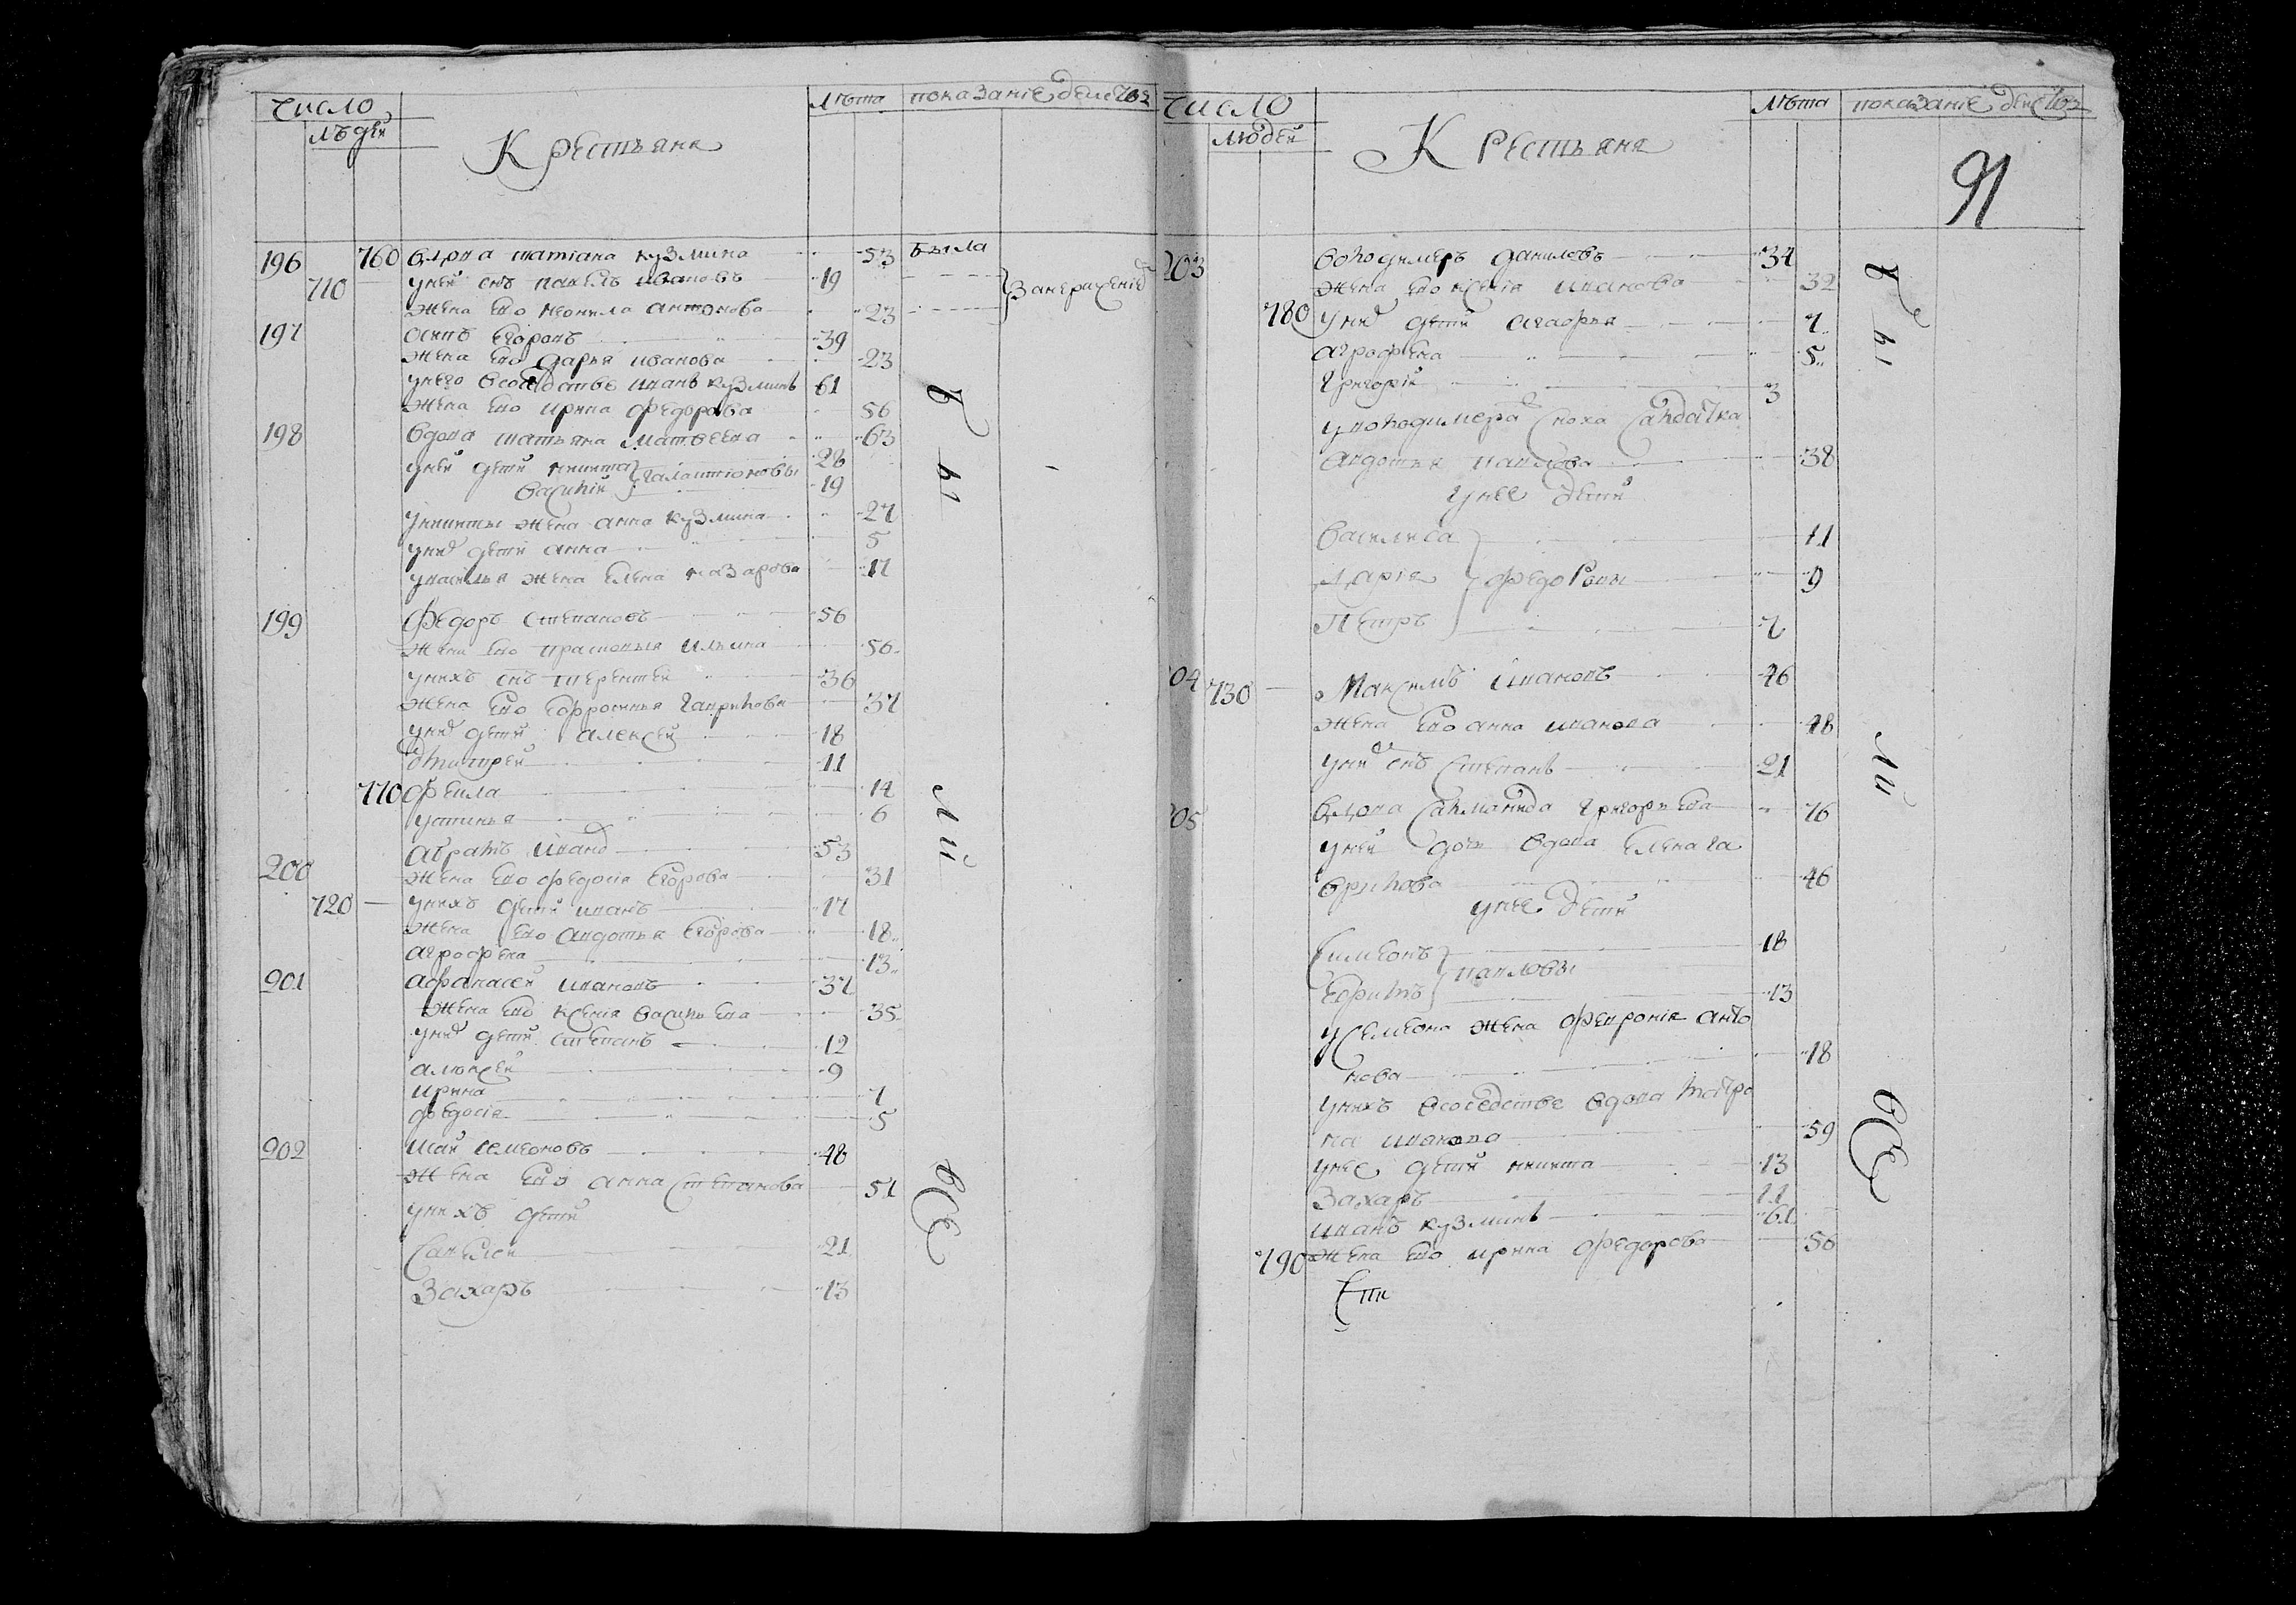 число
людей
Крестьяне
лѣта
показание действъ
196 760 вдова татiана кузмина 53 была
710 у ней снъ павелъ ивановъ 19
жена ево неонила антонова 23
197 осипъ егоровъ 39
жена ево дарья иванова 23
у него в соседстве иванъ кузминъ 61
жена ево ирина федорова 56
198 вдова татьяна матвеева 63
у ней дети никита 26
василiй 19
у никиты жена анна кузмина 27
у них дети анна 5
у василья жена елена назарова 17
199 федоръ степановъ 56
жена ево прасковья ильина 56
у нихъ снъ терентей 36
жена ево ефросинья гаврилова 37
у них дети алексей 18
дмитрей 11
770 февла 14
устинья 6
200 иванов 53
жена ево федосiя егорова 31
720 у нихъ дети иванъ 17
жена ево авдотья егорова 18
агрофена 13
201 афанасей ивановъ 37
жена ево ксенiя васильева 35
у них дети степанъ 12
алексей 9
ирина 7
федосiя 5
202 исай семеновъ 48
жена ево анна степанова 51
у нихъ дети
савелей 21
захаръ 13
бы
ли
все
число
людей
Крестьяне
лѣта
показанiе действъ
91
203 володимеръ даниловъ 34
жена ево ксенiя иванова 32
780 у них дети агафья 7
агрофена 5
григорiй 3
у володимера сноха салдатка
авдотья павлова 38
у нее дети
василиса 11
дарiя федоровы 9
петръ 7
04 730 Максимъ ивановъ 46
жена ево анна иванова 48
у них снъ степанъ 21
05 вдова григорьева 76
у ней дочь вдова елена га
врилова 46
у нее дети
симеонъ 18
павловы
ефимъ 13
у семеона жена феврониiя анто
нова 18
у нихъ в соседстве вдова матре
на иванова 59
у нее дети никита 13
захаръ 11
иванъ кузминъ 61
790 жена ево ирина федорова 56
бы
ли
все